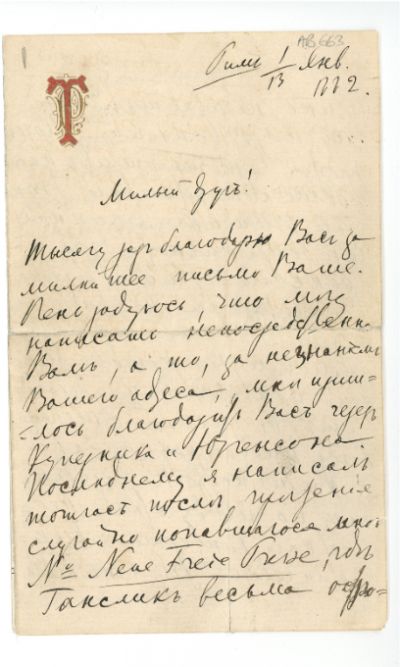 1
AB 663
Римъ 1/13 Янв.
1882.
ПТ
Милый другъ!
Тысячу разъ благодарю Васъ за
милѣйшее письмо Ваше.
Очень радуюсь, что могу
написать непосредственно
Вамъ, а то, за незнаніемъ
Вашего адреса, мнѣ приш-
-лось благодарить Васъ черезъ
Куперника и Юргенсона.
Послѣднему я написалъ
тотчасъ послѣ прочтенія
случайно попавшагося мнѣ
№ Neue Freie Presse, гдѣ
Гансликъ весьма